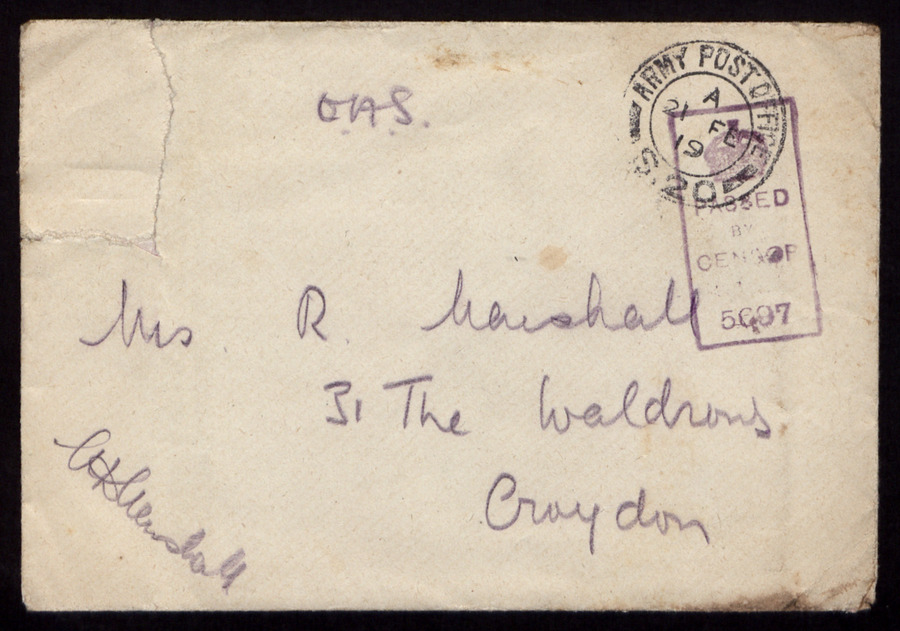 O.A.S.
ARMY POST OFFICE
A
21 FE
19
S.20
PASSED
BY
CENSOR
5697
Mrs R Marshall
31 The Waldrons
Croydon
Marshall